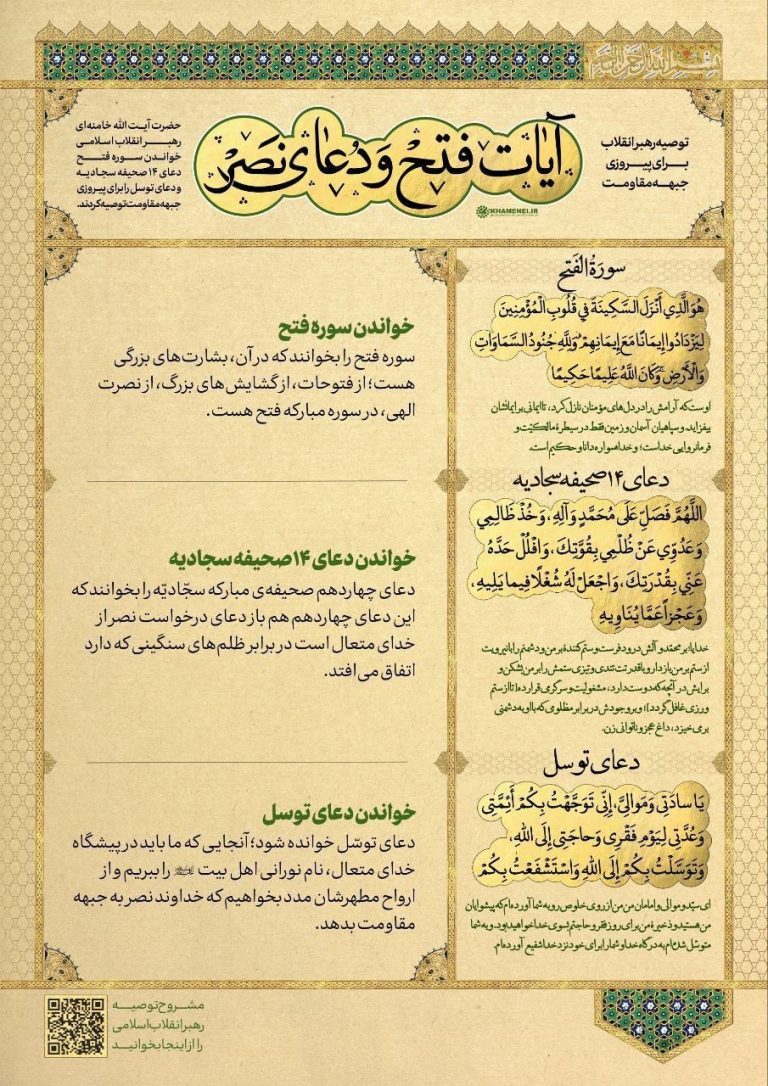 توصیه رهبر انقلاب
برای پیروزی
جبهه مقاومت
آیات فتح و دعای نصر
KHAMENEI.IR
حضرت آیت الله خامنه‌ای
رهبر انقلاب اسلامی
خواندن سوره فتح
دعای ۱۴ صحیفه سجادیه
و دعای توسل را برای پیروزی
جبهه مقاومت توصیه کردند.
سورة الفَتح
هُوَ الَّذِي أَنْزَلَ السَّكِينَةَ فِي قُلُوبِ الْمُؤْمِنِينَ
لِيَزْدَادُوا إِيمَانًا مَعَ إِيمَانِهِمْ وَلِلَّهِ جُنُودُ السَّمَاوَاتِ
وَالْأَرْضِ وَكَانَ اللَّهُ عَلِيمًا حَكِيمًا
اوست که آرامش را در دل‌های مؤمنان نازل کرد، تا ایمانی بر ایمانشان
بیفزاید و سپاهیان آسمان و زمین فقط در سیطرهٔ مالکیّت و
فرمانروایی خداست؛ و خدا همواره دانا و حکیم است.
خواندن سوره فتح
سوره فتح را بخوانند که در آن، بشارت‌های بزرگی
هست؛ از فتوحات، از گشایش‌های بزرگ، از نصرت
الهی، در سوره مبارکه فتح هست.
دعای ۱۴ صحیفه سجادیه
اللَّهُمَّ فَصَلِّ عَلَى مُحَمَّدٍ وَآلِهِ، وَخُذْ ظَالِمِي
وَعَدُوِّي عَنْ ظُلْمِي بِقُوَّتِكَ، وَافْلُلْ حَدَّهُ
عَنِّي بِقُدْرَتِكَ، وَاجْعَلْ لَهُ شُغْلًا فِيمَا يَلِيهِ،
وَعَجْزاً عَمَّا يُنَاوِيهِ
خدایا! بر محمّد و آلش درود فرست و ستم کنندهٔ بر من و دشمنم را با نیرویت
از ستم بر من بازدار و با قدرتت تندی و تیزی ستمش را بر من بشکن و
برایش در آنچه که دوست دارد، مشغولیت و سرگرمی قرار ده [تا از ستم
ورزی غافل گردد]؛ و بر وجودش در برابر مظلومی که با او به دشمنی
برمی‌خیزد، داغ عجز و ناتوانی زن.
خواندن دعای ۱۴ صحیفه سجادیه
دعای چهاردهم صحیفه‌ی مبارکه سجّادیّه را بخوانند که
این دعای چهاردهم هم باز دعای درخواست نصر از
خدای متعال است در برابر ظلم‌های سنگینی که دارد
اتفاق می‌افتد.
دعای توسل
يَا سادَتِي وَمَوالِيَّ، إِنِّي تَوَجَّهْتُ بِكُمْ أَئِمَّتِي
وَعُدَّتِي لِيَوْمِ فَقْرِي وَحاجَتِي إِلَى اللهِ،
وَتَوَسَّلْتُ بِكُمْ إِلَى اللهِ وَاسْتَشْفَعْتُ بِكُمْ
ای سیّد و موالی و امامان من من از روی خلوص رو به شما آورده‌ام که پیشوایان
من هستید و ذخیرهٔ من برای روز فقر و حاجتم بسوی خدا خواهید بود. و به شما
متوسّل شده‌ام به درگاه خدا و شما را برای خود نزد خدا شفیع آورده‌ام.
خواندن دعای توسل
دعای توسّل خوانده شود؛ آنجایی که ما باید در پیشگاه
خدای متعال، نام نورانی اهل بیت را ببریم و از
ارواح مطهرشان مدد بخواهیم که خداوند نصر به جبهه
مقاومت بدهد.
مشروح توصیه
رهبر انقلاب اسلامی
را از اینجا بخوانید